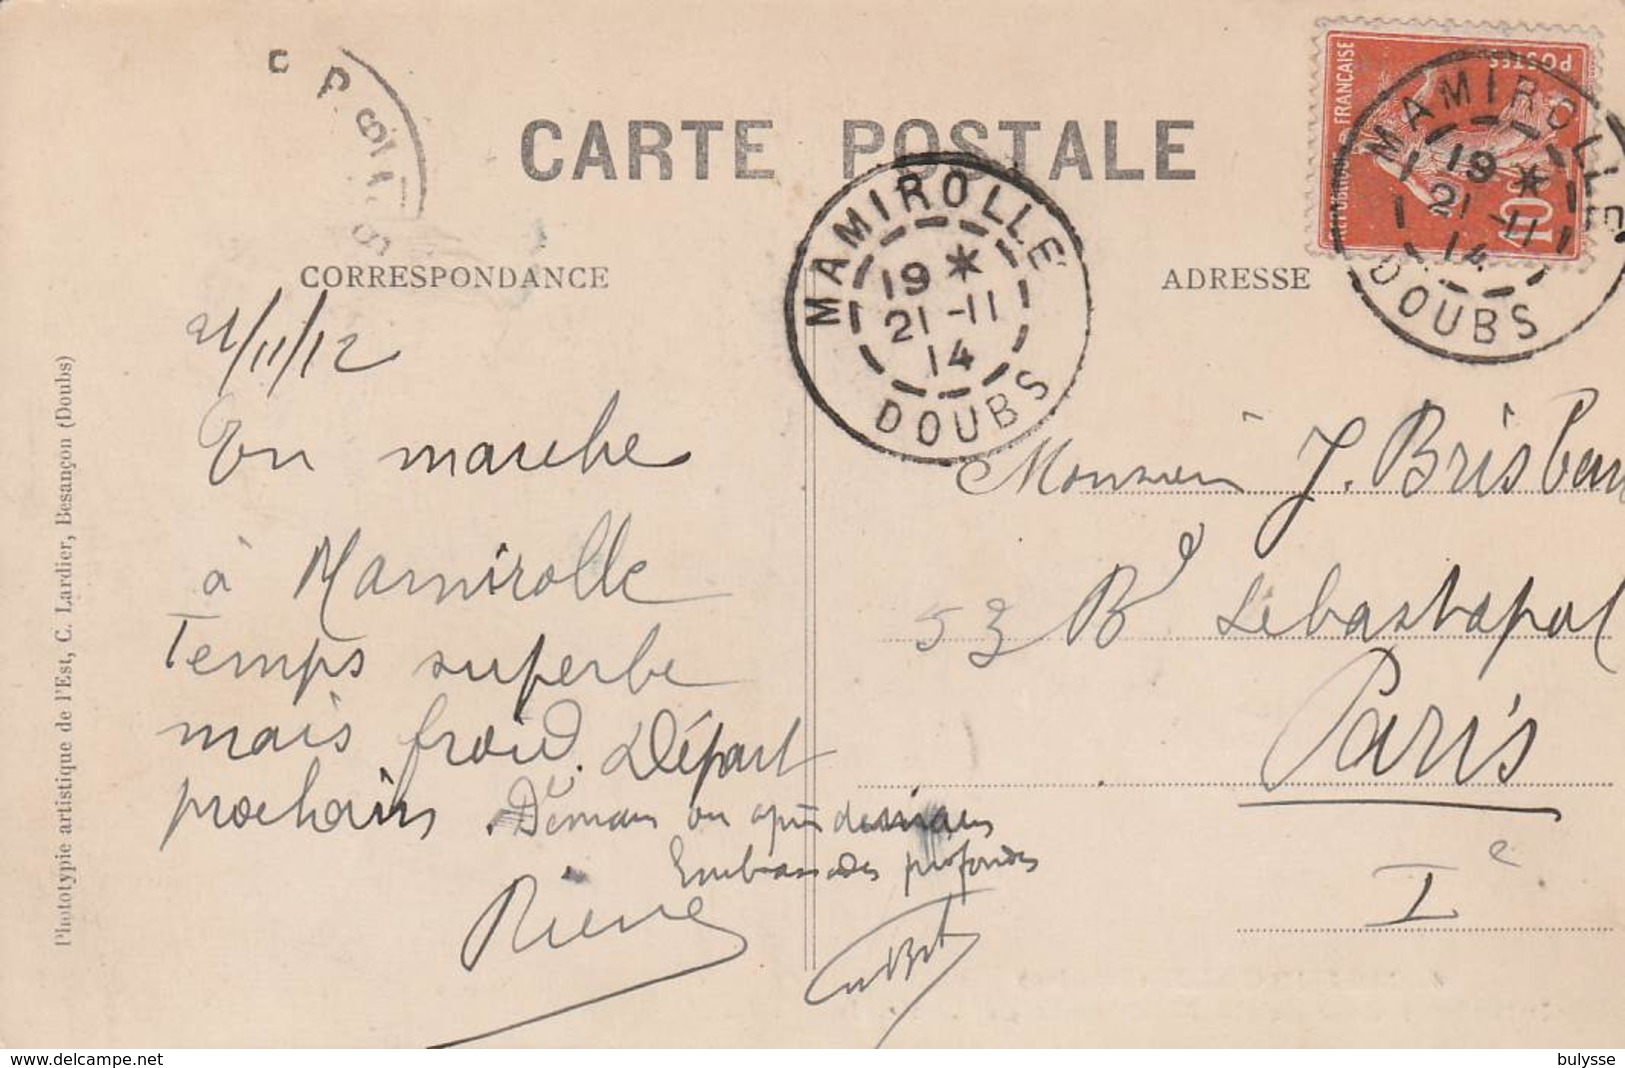 CARTE POSTALE
CORRESPONDANCE
ADRESSE
MAMIROLLE
19 *
21 -11
14
DOUBS
RÉPUBLIQUE FRANÇAISE
POSTES
10c
MAMIROLLE
19 *
21 -11
14
DOUBS
21/11/12
En marche
à Mamirolle
Temps superbe
mais froid. Départ
prochain. Demain ou après demain
Embrassades profondes
Pierre
Monsieur J. Brisbar
53 Bd Sébastopol
Paris
Ie
Phototypie artistique de l'Est, C. Lardier, Besançon (Doubs)
www.delcampe.net
bulysse